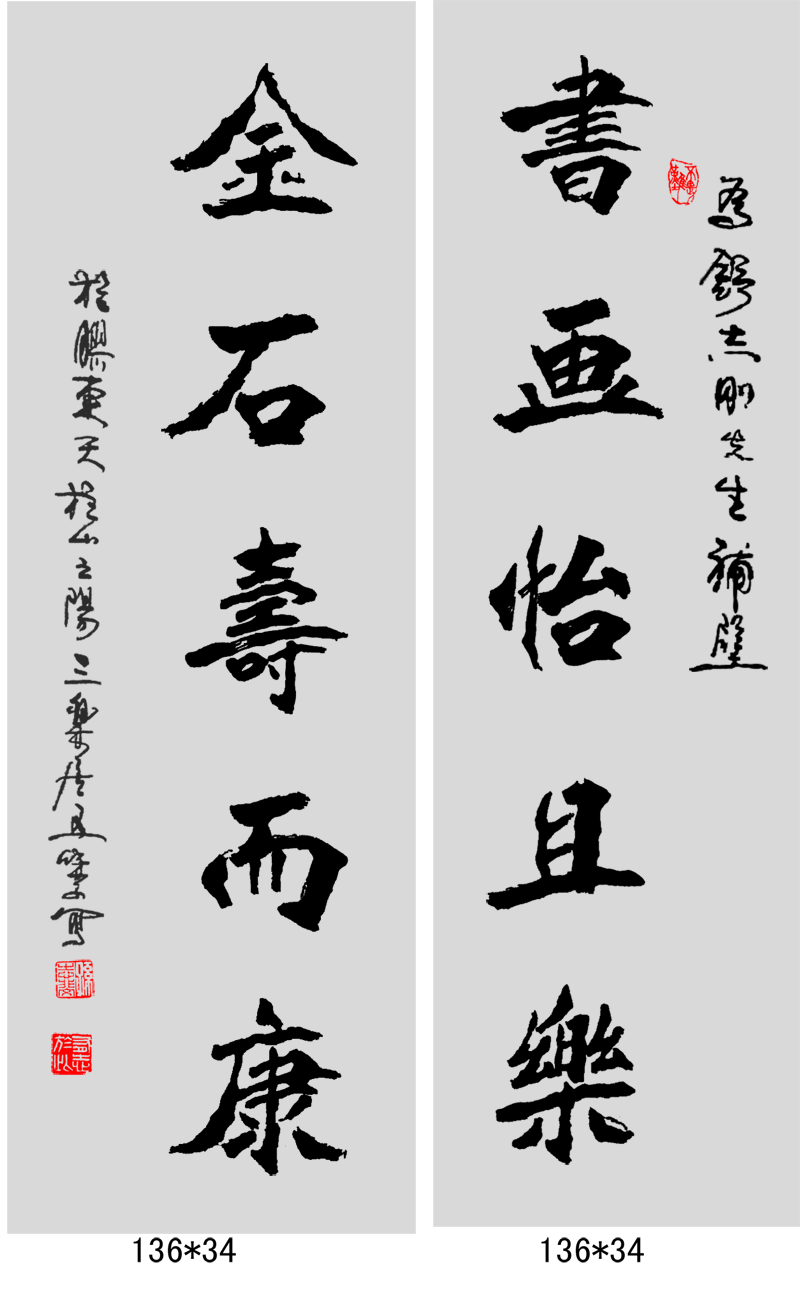 為舒志剛先生補壁
書画怡且樂
金石壽而康
於膠東天柱山之陽三樂居寫
136*34
136*34